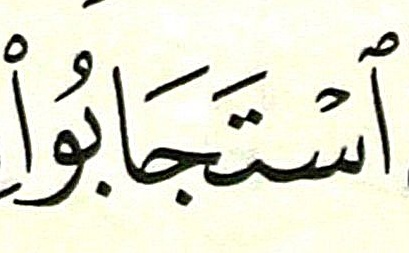 ٱسْتَجَابُوا۟